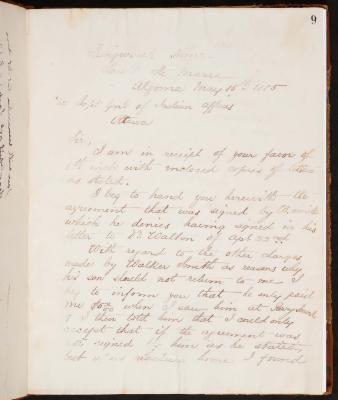 9
Shingwauk Home
Sault Ste Marie
Algoma May 15th 1885
Supt Genl of Indian Affairs
Ottawa
Sir,
I am in receipt of your favor of
inst with enclosed copies of letters
as stated.
I beg to hand you herewith the
agreement that was signed by W. Smith
which he denies having signed in his
letter to Dr Walton of Apl 22nd
With regard to the other charges
made by Walker Smith as reasons why
his son should not return to me I
beg to inform you that he only paid
me when I saw him at Parry Sound
& I then told him that I could only
accept that if the agreement was
not signed by him as he stated,
but upon reaching home I found